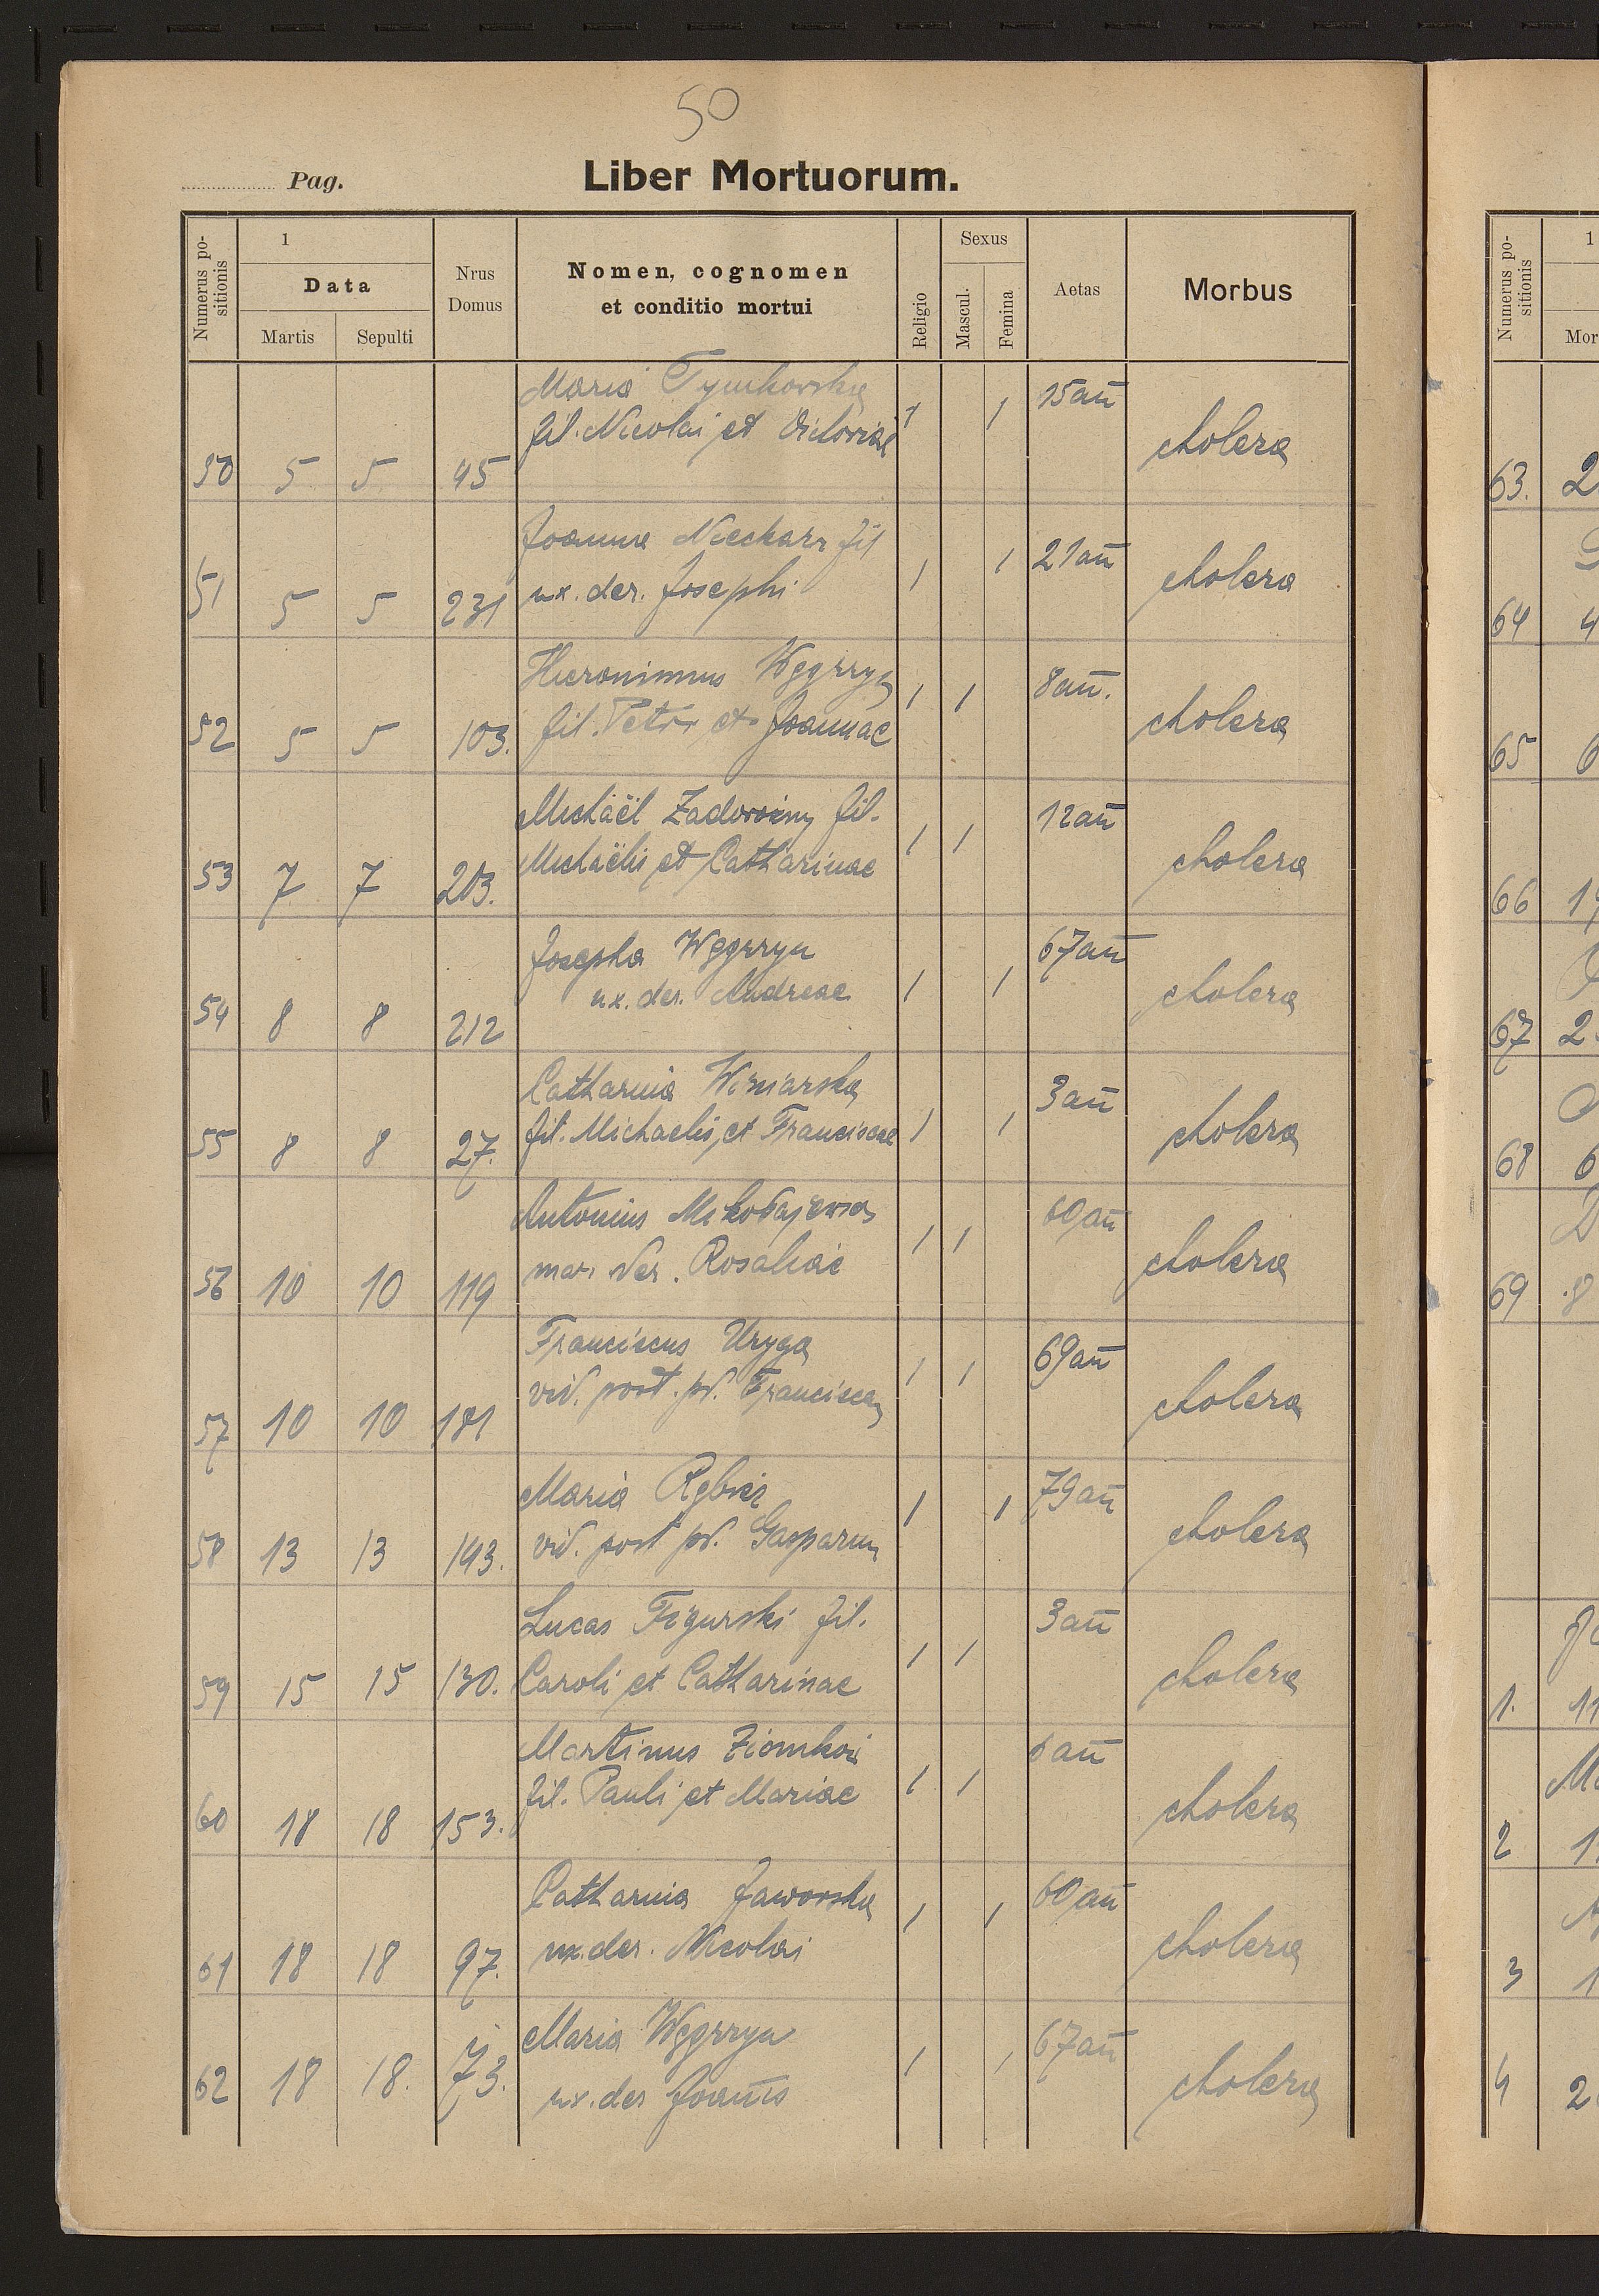 50
Pag.
Liber Mortuorum.
Numerus positionis
1
Data
Martis
Sepulti
Nrus Domus
Nomen, cognomen
et conditio mortui
Religio
Sexus
Mascul.
Femina
Aetas
Morbus
Maria
fil. Nicolai et Victoriae
50 5 5 45 1 1 15 an̄ cholera
Joanna fil
ux. der. Josephi
51 5 5 231 1 1 21 an̄ cholera
Hieronimus Węgrzyn
fil. Petri et Joannae
52 5 5 103. 1 1 8 an̄. cholera
Michaël Zadorożny fil.
Michaëlis et Catharinae
53 7 7 203. 1 1 12 an̄ cholera
Josepha Węgrzyn
ux. der. Andreae
54 8 8 212 1 1 67 an̄ cholera
Catharina Winiarska
fil. Michaelis et Franciscae
55 8 8 27. 1 1 3 an̄ cholera
Antonius
mar. der. Rosaliae
56 10 10 119 1 1 60 an̄ cholera
Franciscus Uryga
vid. post. pd. Franciscam
57 10 10 181 1 1 69 an̄ cholera
Maria
vid. post pd. Gasparum
58 13 13 193. 1 1 79 an̄ cholera
Lucas Figurski fil.
Caroli et Catharinae
59 15 15 130. 1 1 3 an̄ cholera
Martinus
fil. Pauli et Mariae
60 18 18 153. 1 1 6 an̄ cholera
Catharina Jaworska
ux. der. Nicolai
61 18 18 97. 1 1 60 an̄ cholera
Maria Węgrzyn
ux. der Joan̄is
62 18 18. 73. 1 1 67 an̄ cholera
Numerus positionis
1
Mor
63. 2
64 4
65 6
66 19
67 2
68 6
69 8
1. 11
2 1
3 1
4 2